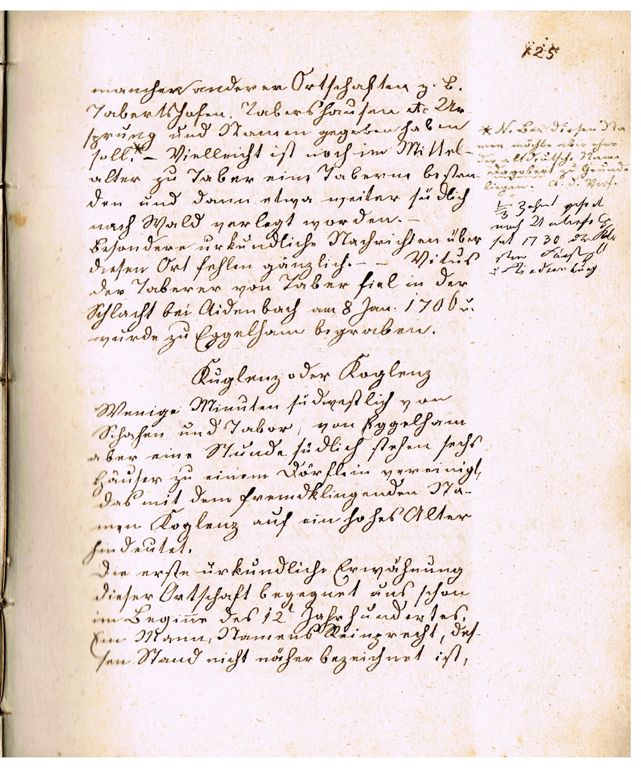 125
mancher anderer Ortschaften z. B.
Tabertshofen, Tabershausen etc Ur-
sprung und Namen gegeben haben
soll.* – Vielleicht ist noch im Mittel-
alter zu Taber eine Taberne bestan-
den und dann etwa weiter südlich
nach Wald verlegt worden. –
Besondere urkundliche Nachrichten über
diesen Ort fehlen gänzlich. – – Vitus
der Taberer von Taber fiel in der
Schlacht bei Aidenbach am 8 Jan. 1706 u.
wurde zu Eggelham begraben.
Kuglenz oder Koglenz
Wenige Minuten südwestlich von
Schafen und Tabor, von Eggelham
aber eine Stunde südlich stehen sechs
Häuser zu einem Dörflein vereinigt,
das mit dem fremdklingenden Na-
men Koglenz auf ein hohes Alter
hindeutet.
Die erste urkundliche Erwähnung
dieser Ortschaft begegnet uns schon
im Beginn des 12t Jahrhundertes.
Ein Mann, Namens Reinprecht, des-
sen Stand nicht näher bezeichnet ist,
* N. Bei diesem Na-
men möchte aber eher
der altdeutsche Name
zu Grunde
liegen. A. d. Verf.
1/3 Zehent gehört
nach
seit 1730